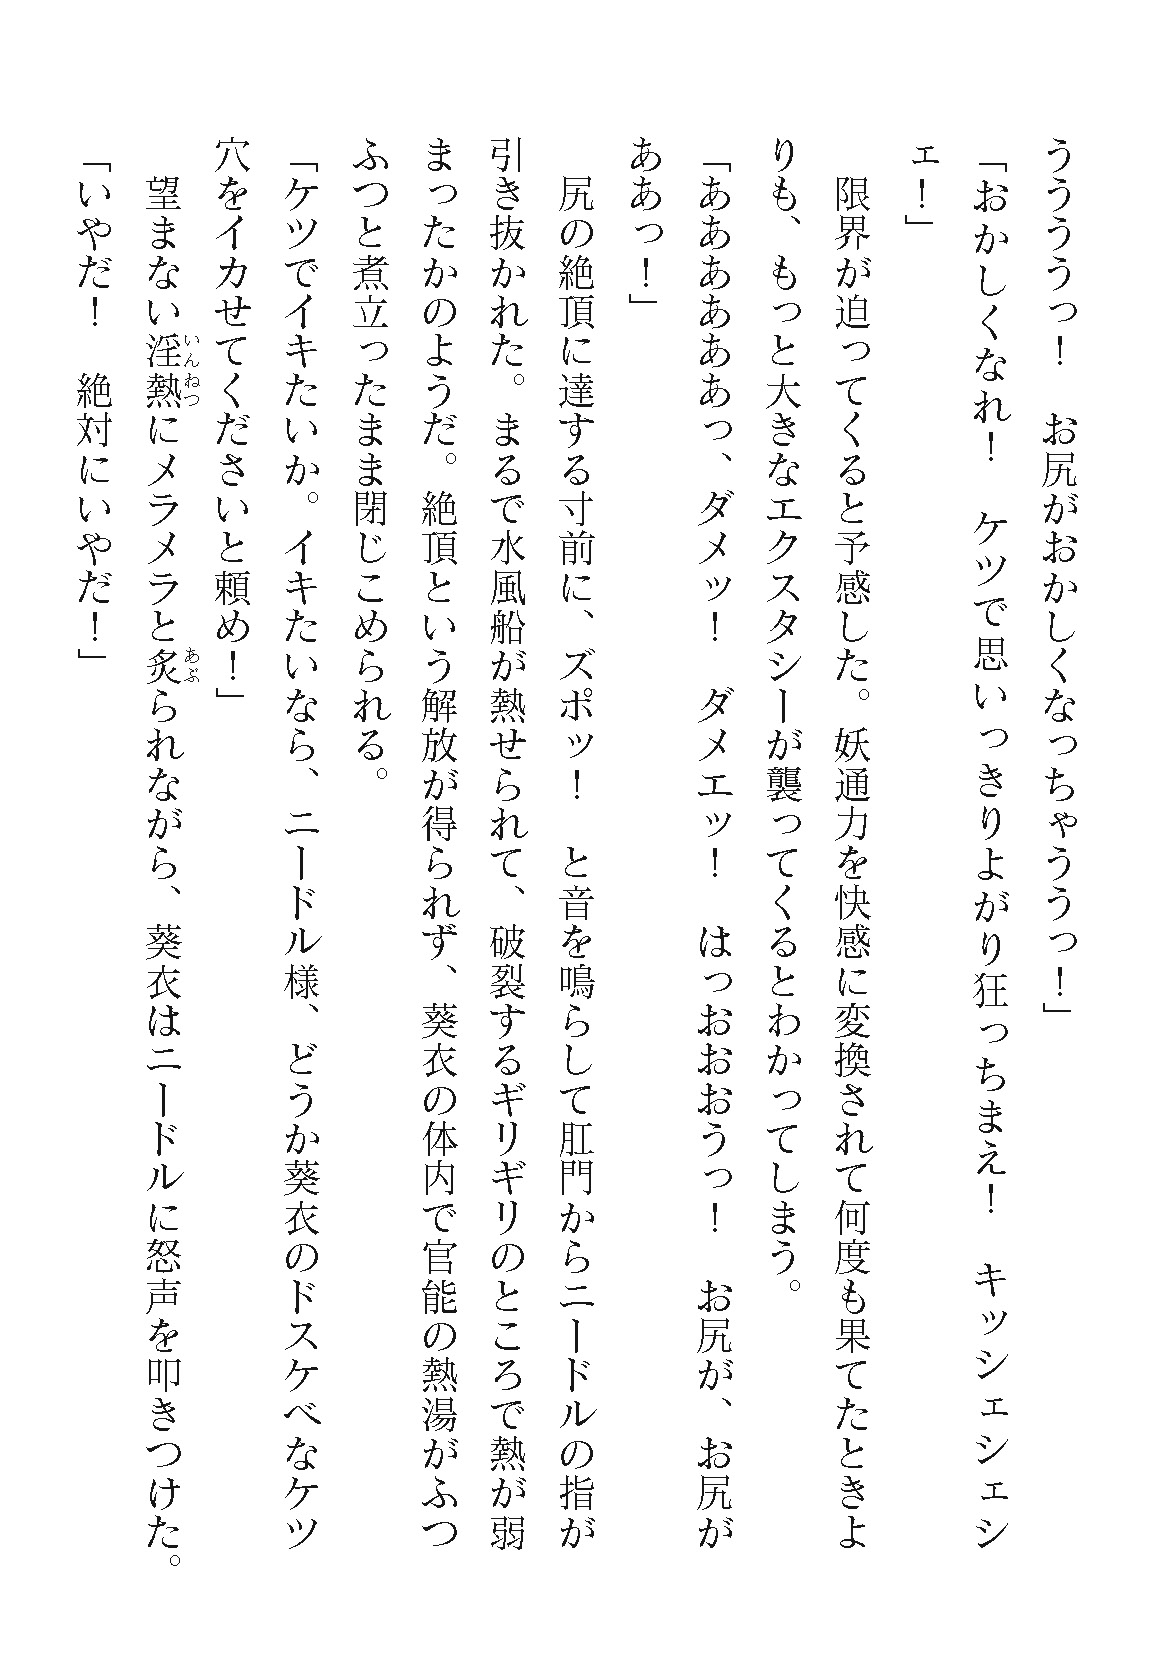 うううっ！　お尻がおかしくなっちゃううっ！」
「おかしくなれ！　ケツで思いっきりよがり狂っちまえ！　キッシェシェシ
ェ！」
　限界が迫ってくると予感した。妖通力を快感に変換されて何度も果てたときよ
りも、もっと大きなエクスタシーが襲ってくるとわかってしまう。
「ああああああっ、ダメッ！　ダメエッ！　はっおおおうっ！　お尻が、お尻が
ああっ！」
　尻の絶頂に達する寸前に、ズポッ！　と音を鳴らして肛門からニードルの指が
引き抜かれた。まるで水風船が熱せられて、破裂するギリギリのところで熱が弱
まったかのようだ。絶頂という解放が得られず、葵衣の体内で官能の熱湯がふつ
ふつと煮立ったまま閉じこめられる。
「ケツでイキたいか。イキたいなら、ニードル様、どうか葵衣のドスケベなケツ
穴をイカせてくださいと頼め！」
　望まない淫熱にメラメラと炙られながら、葵衣はニードルに怒声を叩きつけた。
「いやだ！　絶対にいやだ！」